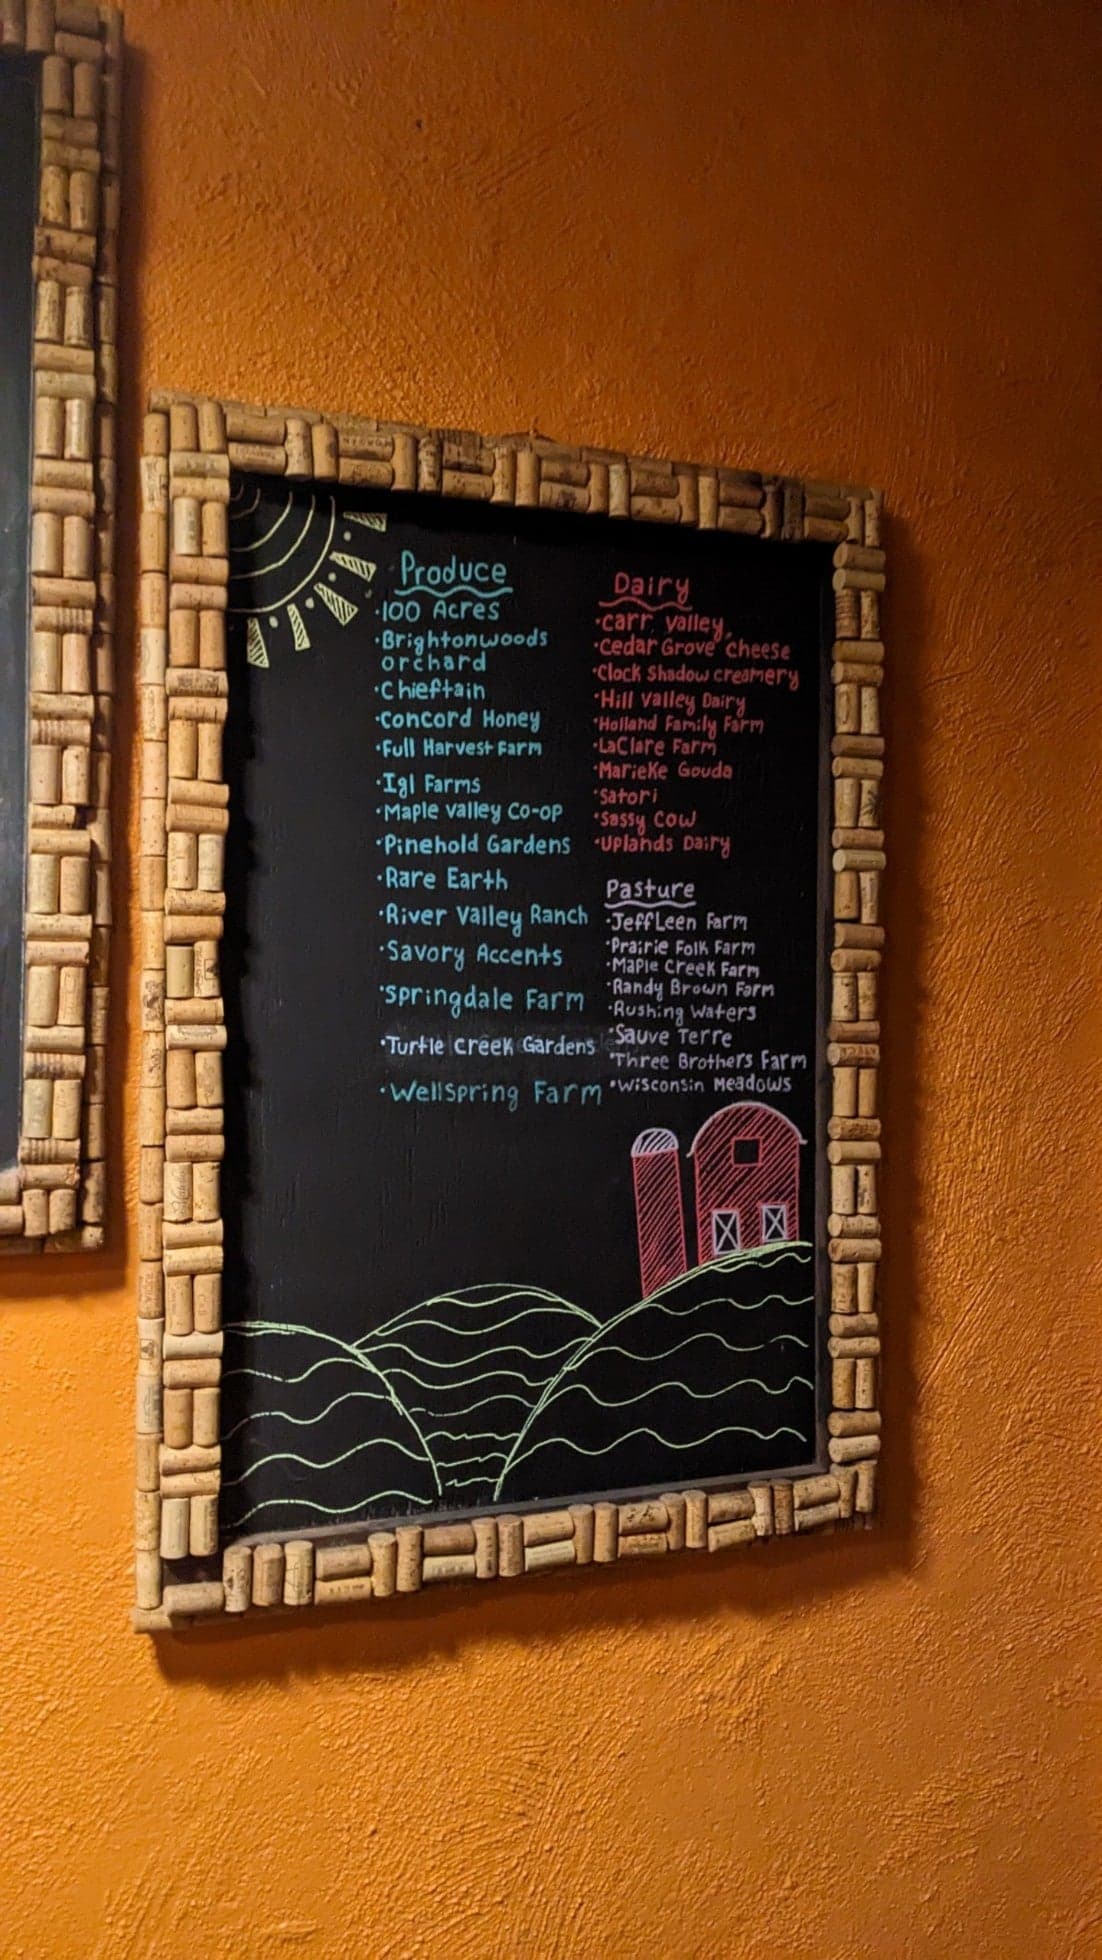 Produce
•100 Acres
•Brightonwoods
orchard
•Chieftain
•Concord Honey
•Full Harvest Farm
•Igl Farms
•Maple Valley Co-op
•Pinehold Gardens
•Rare Earth
•River Valley Ranch
•Savory Accents
•Springdale Farm
•Turtle Creek Gardens
•Wellspring Farm
Dairy
•Carr Valley
•Cedar Grove Cheese
•Clock Shadow Creamery
•Hill Valley Dairy
•Holland Family Farm
•LaClare Farm
•Marieke Gouda
•Satori
•Sassy Cow
•Uplands Dairy
Pasture
•JeffLeen Farm
•Prairie Folk Farm
•Maple Creek Farm
•Randy Brown Farm
•Rushing Waters
•Sauve Terre
•Three Brothers Farm
•Wisconsin Meadows